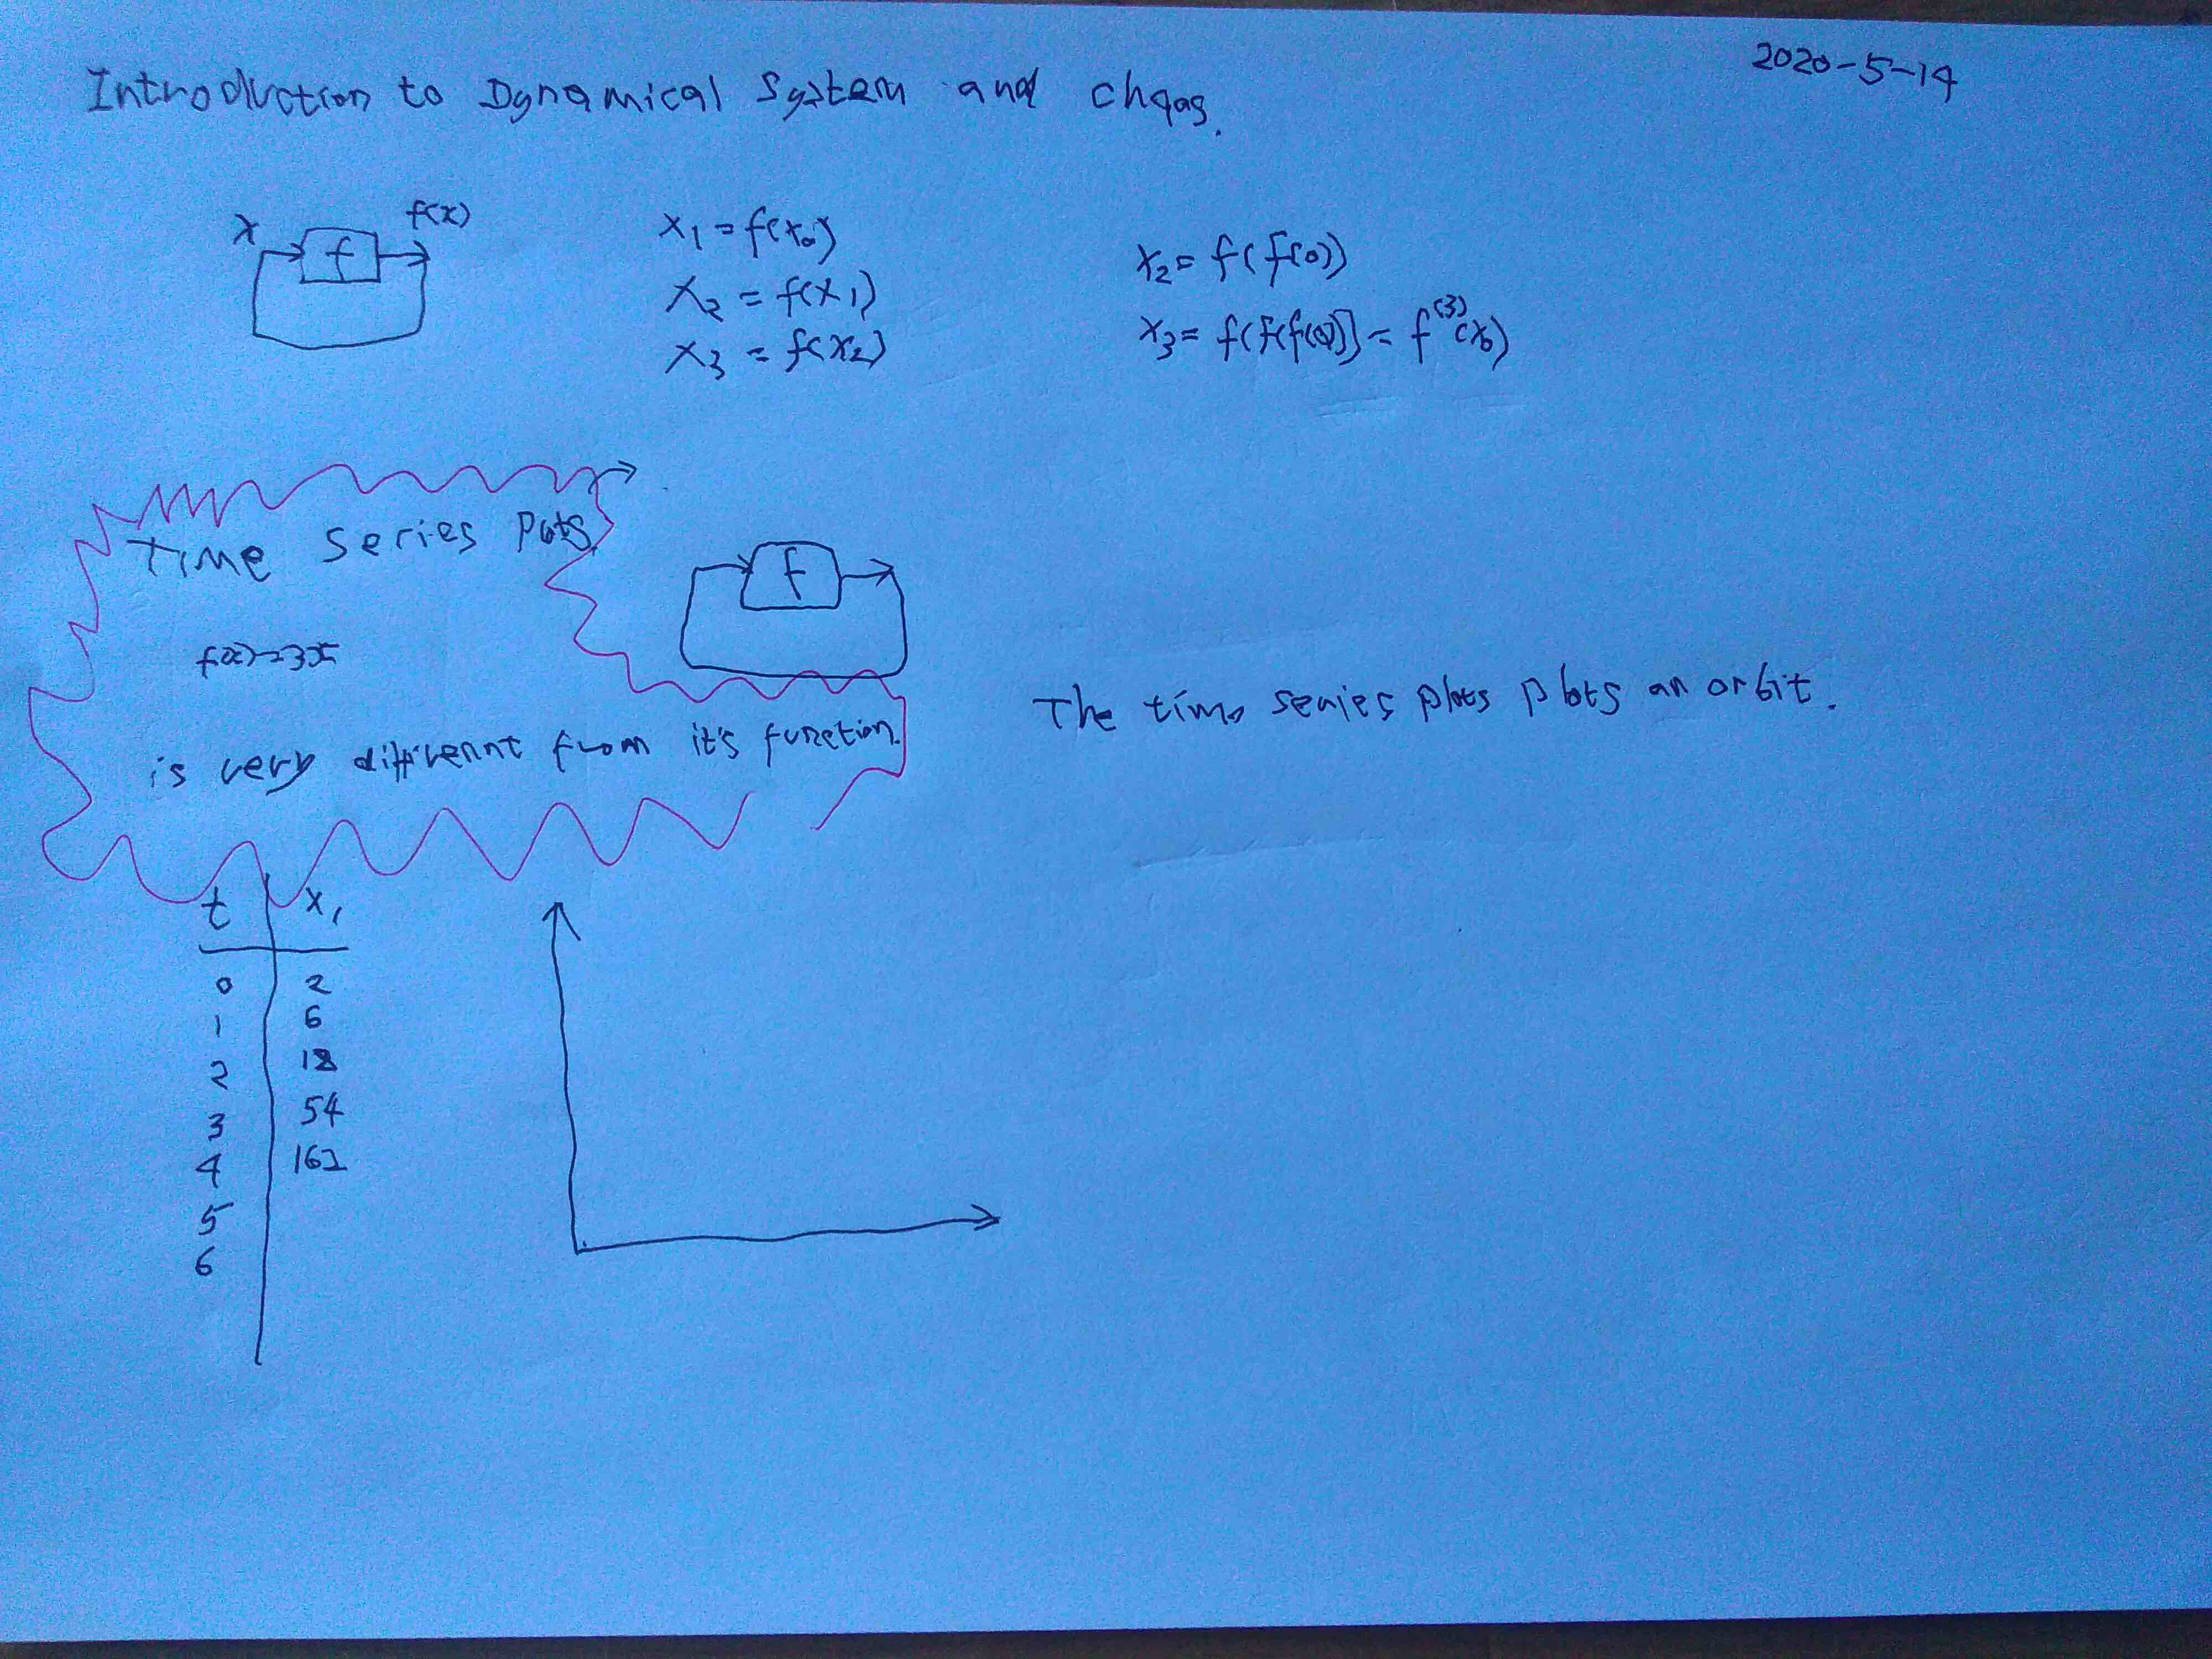 2020-5-14
Introduction to Dynamical System and chaos.
x f(x)
f
x₁ = f(x₀)
x₂ = f(x₁)
x₃ = f(x₂)
x₂ = f(f(0))
x₃ = f(f(f(0))) = f⁽³⁾(x₀)
Time series Plots.
f
f(x)=3x
is very differennt from it's function.
The time series plots plots an orbit.
t x₁
0 2
1 6
2 18
3 54
4 162
5
6